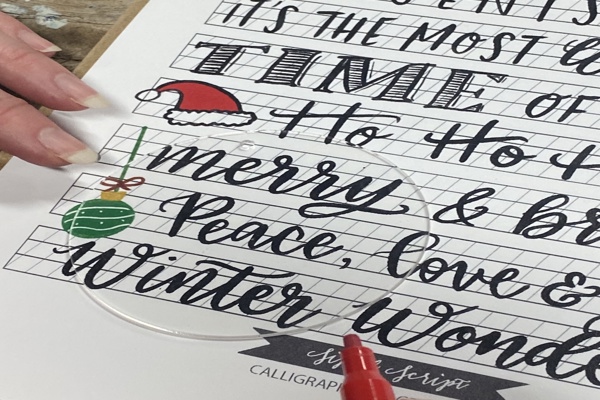 IT'S THE MOST
TIME OF
Ho Ho H
merry & br
Peace, love &
Winter Wonde
Script
CALLIGRAP